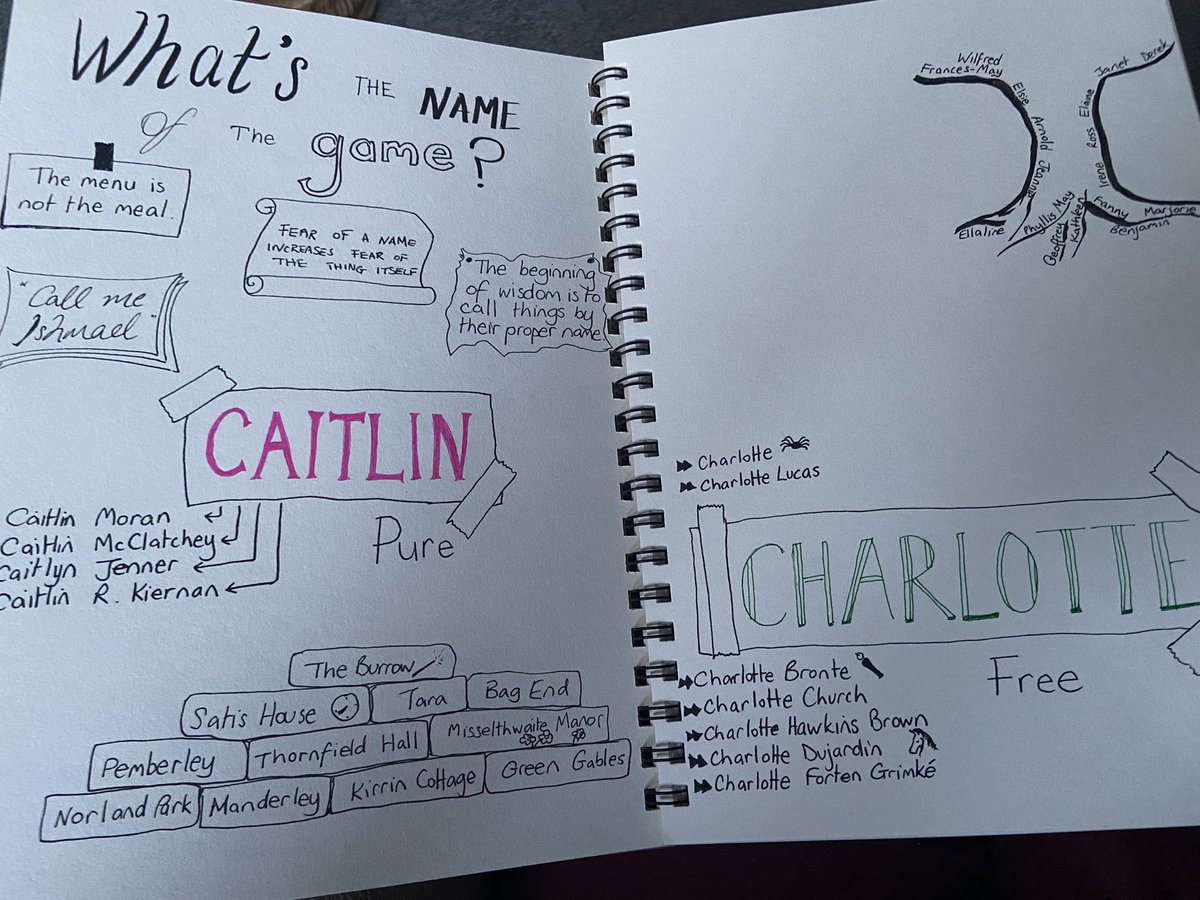 What's THE NAME
of The game?
The menu is
not the meal.
FEAR OF A NAME
INCREASES FEAR OF
THE THING ITSELF
"Call me
Ishmael"
The beginning
of wisdom is to
call things by
their proper name.
CAITLIN
Pure
Caitlin Moran
Caitlin McClatchey
Caitlyn Jenner
Caitlin R. Kiernan
The Burrow
Satis House
Tara
Bag End
Pemberley
Thornfield Hall
Misselthwaite Manor
Norland Park
Manderley
Kirrin Cottage
Green Gables
Wilfred
Frances-May
Elsie
Arnold
Jeanne
Ellaline
Phyllis May
Geoffrey
Kathleen
Derek
Janet
Elaine
Ross
Irene
Fanny
Marjorie
Benjamin
Charlotte
Charlotte Lucas
CHARLOTTE
Free
Charlotte Bronte
Charlotte Church
Charlotte Hawkins Brown
Charlotte Dujardin
Charlotte Forten Grimké